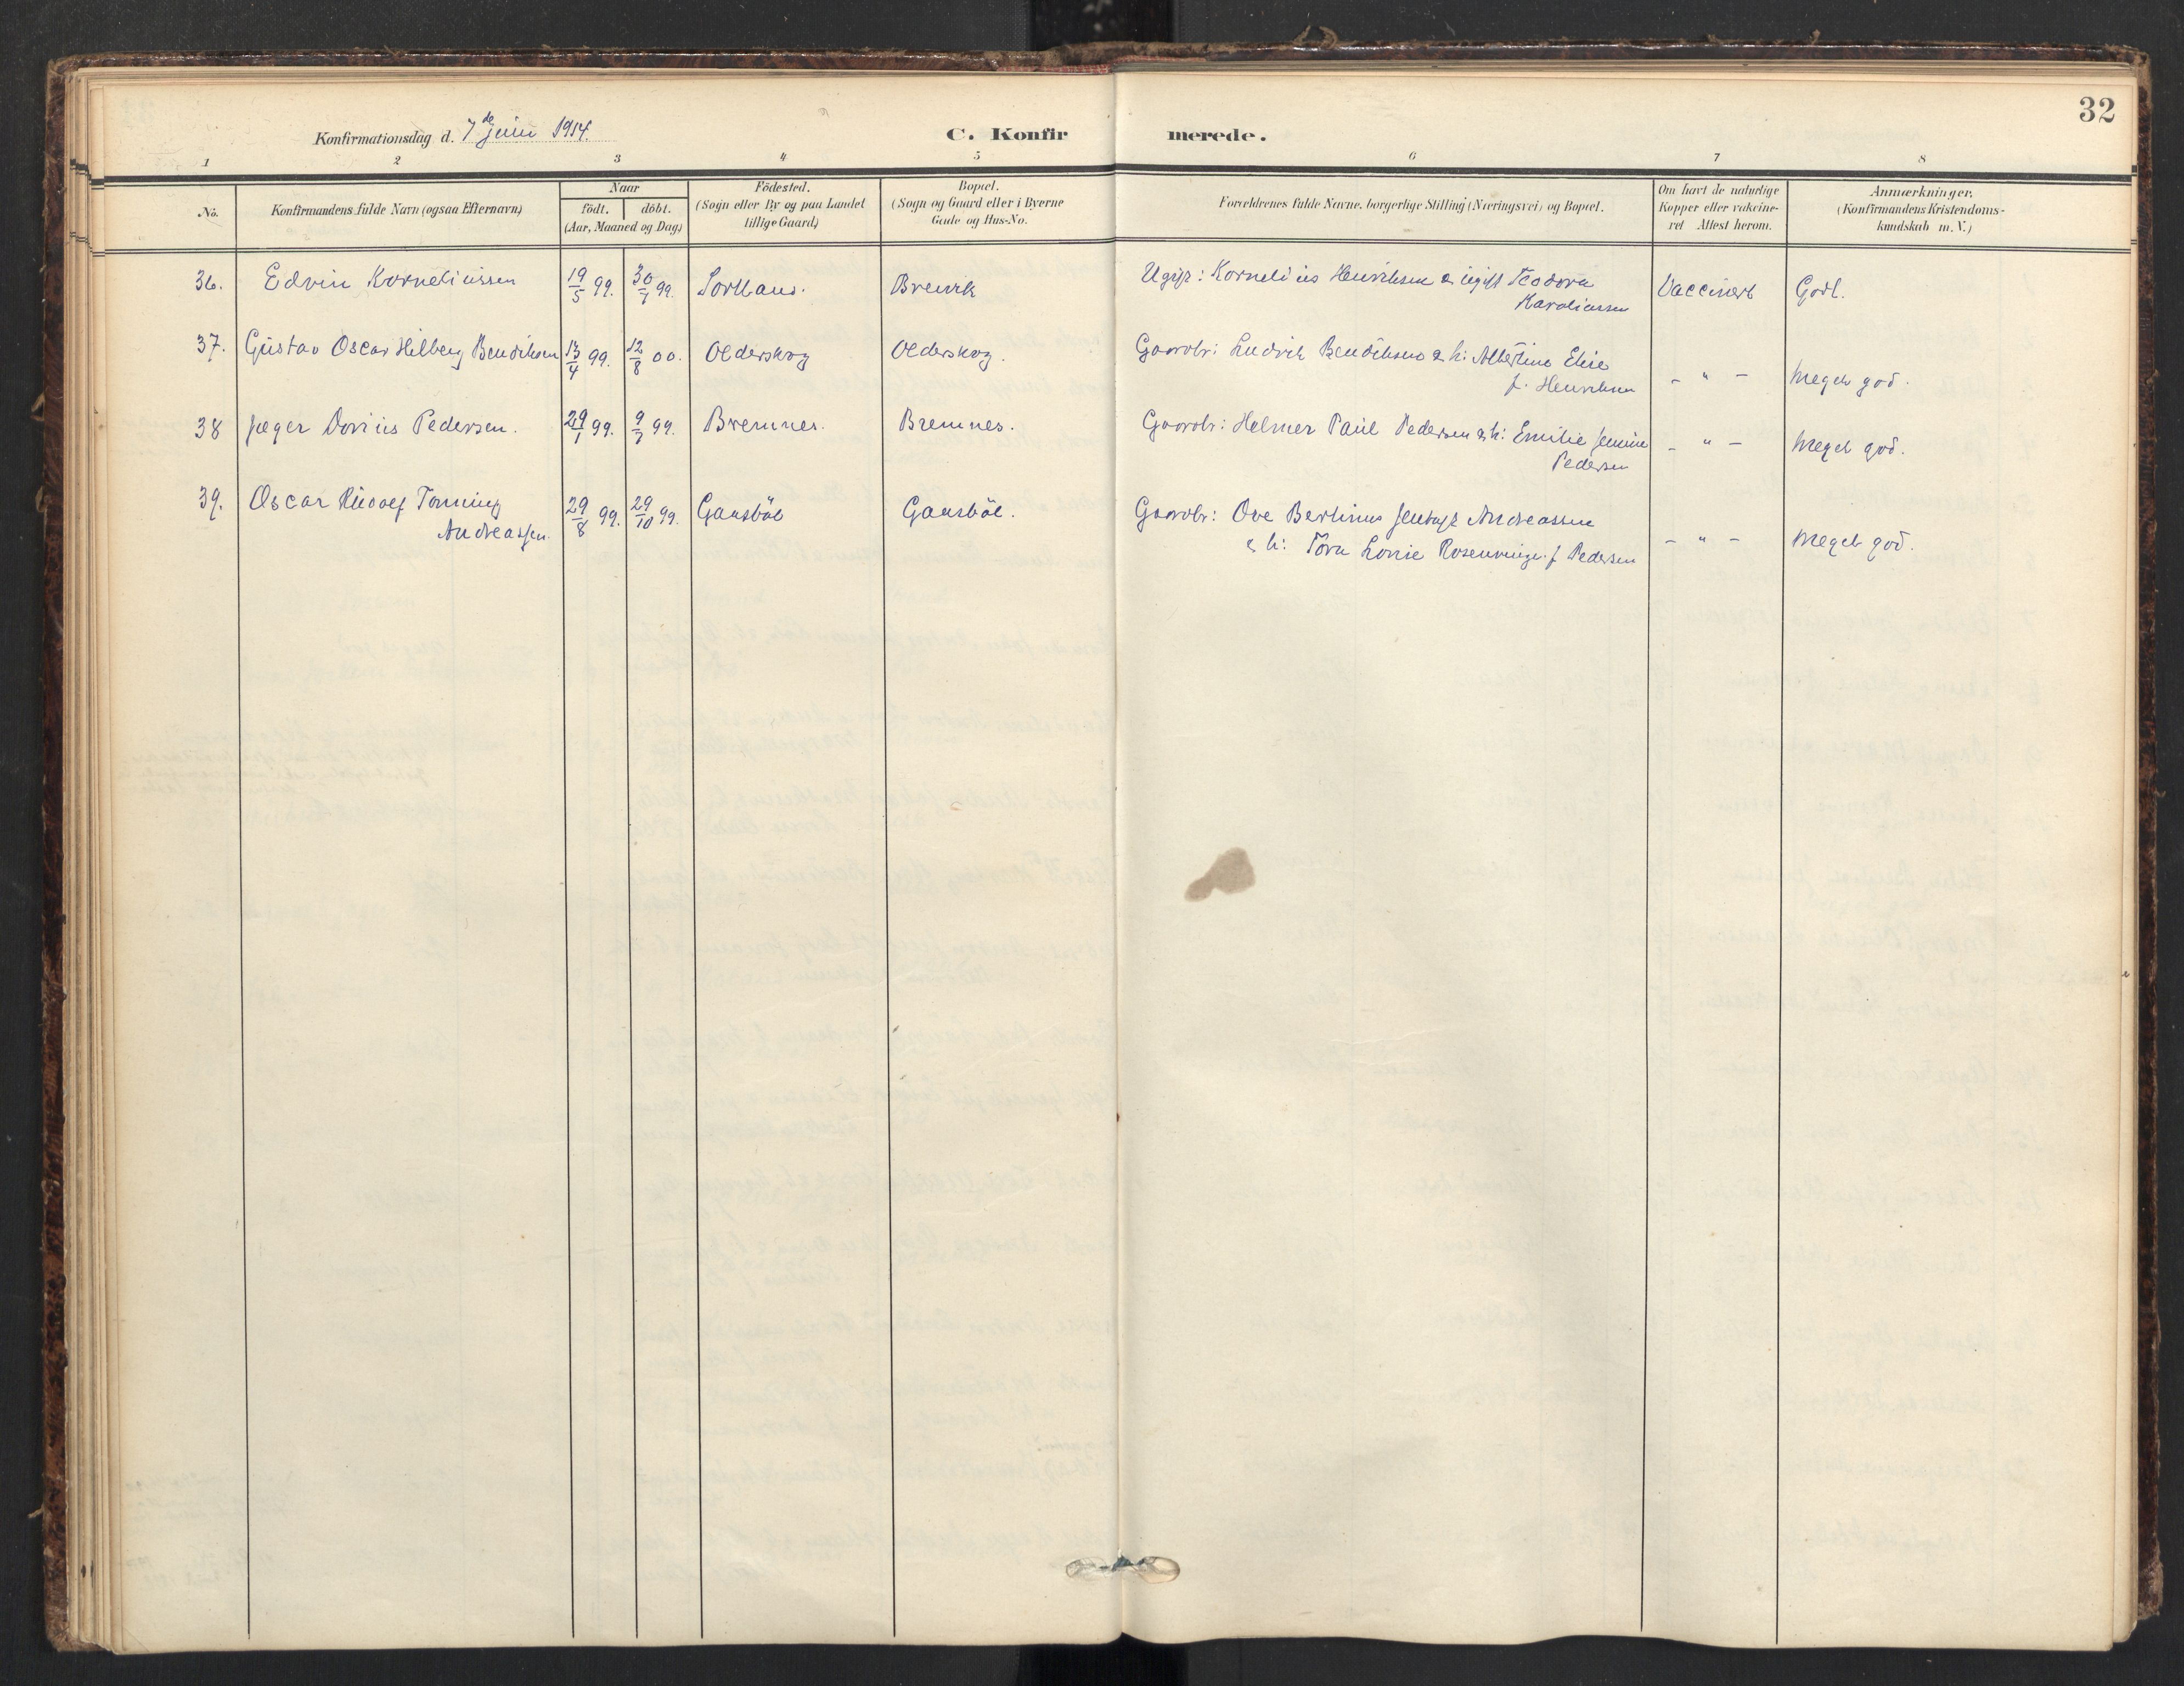 32
Konfirmationsdag d. 7de juni 1914.
C. Konfirmerede.
1 2 3 4 5 6 7 8
No.
Konfirmandens fulde Navn (ogsaa Efternavn)
Naar
födt. döbt.
(Aar, Maaned og Dag.)
Födested.
(Sogn eller By og paa Landet
tillige Gaard.)
Bopæl.
(Sogn og Gaard eller i Byerne
Gade og Hus-No.
Forældrenes fulde Navne, borgerlige Stilling (Næringsvei) og Bopæl.
Om havt de naturlige
Kopper eller vakcine-
ret Attest herom.
Anmærkninger.
(Konfirmandens Kristendoms-
kundskab m. V.)
36. Edvin Korneliussen 19/5 99. 30/7 99. Sortland. Breivik Ugift: Kornelius Henriksen & ugift Teodora Vaccinert Godt.
Karoliussen
37. Gustav Oscar Hilberg Bendiksen 13/4 99. 12/8 00. Olderskog Olderskog. Gaardbr: Ludvik Bendiksen & h: Albertine Elise
f. Henriksen - " - Meget god.
38 Jæger Dorius Pedersen. 29/1 99. 9/7 99. Bremnes. Bremnes. Gaardbr: Helmer Paul Pedersen & h: Emilie Jenine - " - Meget god.
Pedersen
39. Oscar Rudolf Tonning 29/8 99. 29/10 99. Gausböl Gausböl. Gaardbr: Ove Bertinus Jentoft Andreassen
Andreassen. & h: Tora Lovise Rosenvinge f Pedersen - " - Meget god.